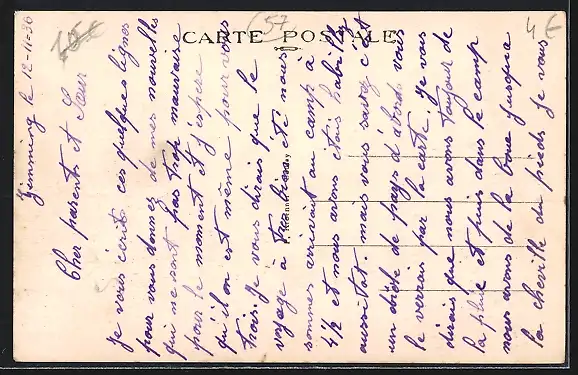 CARTE POSTALE
(57)
4€
Zimming le 12-11-36
Cher parents et Sœur
Je vous écrit ces quelques lignes
pour vous donnez de mes nouvelles
qui ne sont pas trop mauvaise
pour le moment et j'espère
qu'il en est même pour vous
trois. Je vous dirais que le
voyage à très bien été nous
sommes arrivait au camp à
4/2 et nous avons étais habillé
aussitot. mais vous savez c'est
un drôle de pays d'abord vous
le verrais par la carte. Je vous
dirais que nous avons toujour de
la pluie et puis dans le camp
nous avons de la boue jusqua
la cheville du pieds je vous